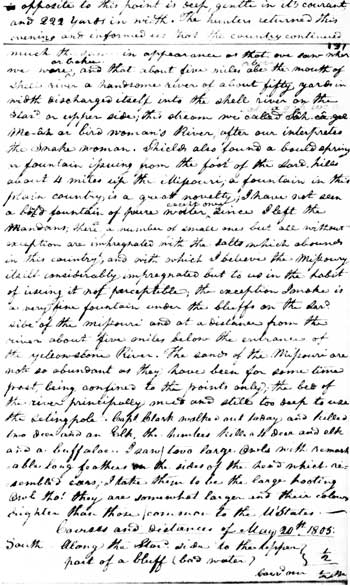 is opposite to this point is deep, gentle in it's courant,
and 222 yards in width. The hunters returned this
evening and informed us that the country continued
131
much the same in appearance as that we saw where
we were or broken, and that about five miles abe the mouth of
shell river a handsome river of about fifty yards in
width discharged itself into the shell river on the
Stard or upper side; this stream we called Sâh-câ-ger
me-âh or bird woman's River, after our interpreter
the Snake woman. Shields also found a bould spring
or fountain issuing from the foot of the Lard. hills
about 4 miles up the Missouri; a fountain in this
plain country is a great novelty; I have not seen
a bold fountain of pure water except one since I left the
Mandans; there a number of small ones but all without
exception are impregnated with the salts which abound
in this country, and with which I believe the Missoury
itself considerably impregnated but to us in the habit
of useing it not perceptible; the exception I make is
a very fine fountain under the bluffs on the Lard.
side of the Missouri and at a distance from the
river about five miles below the entrance of
the yellowstone River. The sands of the Missouri are
not so abundant as they have been for some time
past, being confined to the points only; the bed of
the river principally mud and still too deep to use
the seting pole. Capt. Clark walked out today and killed
two deer and an Elk, the hunters killed 4 deer and elk
and a buffaloe. I saw two large Owls with remark-
able long feathers on the sides of the head which re-
sembled ears; I take them to be the large hooting
owl tho' they are somewhat larger and their colours
brighter than those common to the U'States.
Courses and distances of May 20th 1805.
South Along the Stard side to the upper
part of a bluff (bad water) ½
½